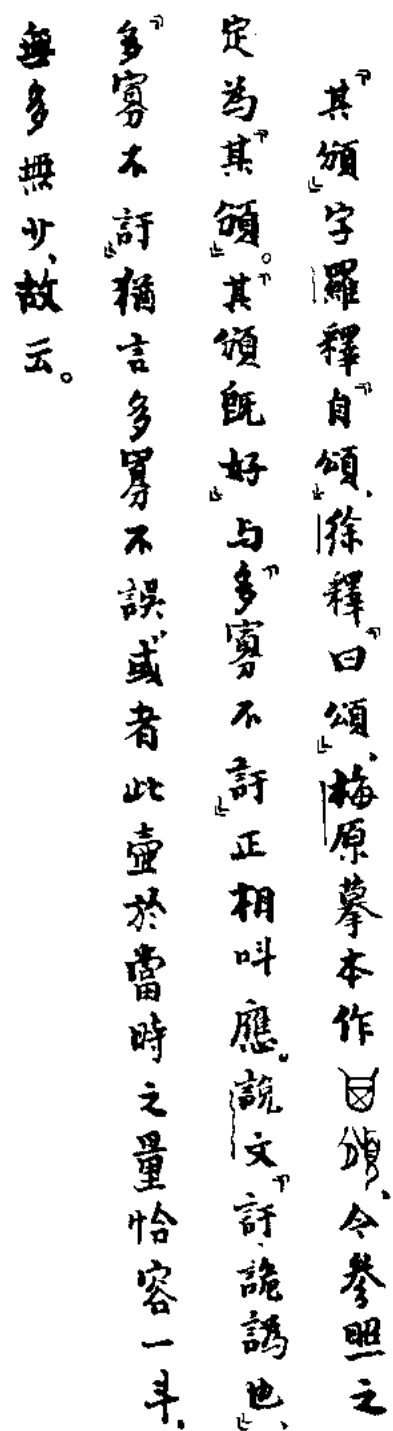 『其頌』字羅釋『自頌』、徐釋『曰頌』、梅原摹本作頌、今參照之
定為『其頌』。『其頌既好』与『多寡不訏』正相叫應。說文『訏、詭譌也』、
『多寡不訏』猶言多寡不誤、或者此壺於當時之量恰容一斗、
無多無少、故云。